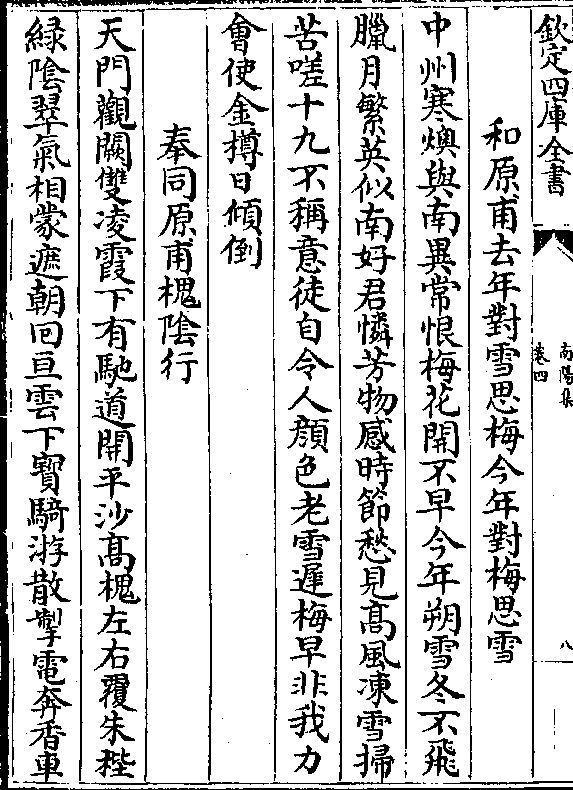 欽定四庫全書
南陽集
卷四
八
和原甫去年對雪思梅今年對梅思雪
中州寒燠與南異常恨梅花開不早今年朔雪冬不飛
臘月繁英似南好君憐芳物感時節愁見髙風凍雪掃
苦嗟十九不稱意徒自令人顔色老雪遲梅早非我力
會使金樽日傾倒
奉同原甫槐隂行
天門觀闕雙凌霞下有馳道開平沙髙槐左右覆朱桎
緑隂翠氣相蒙遮朝囘亘雲下寳騎游散掣電奔香車